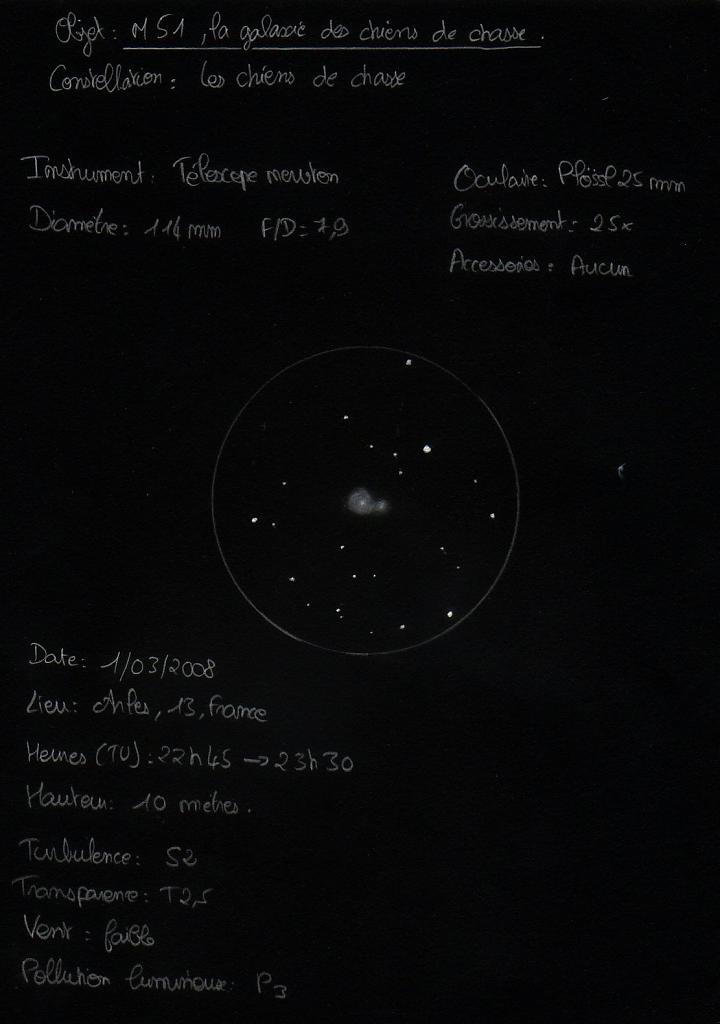 Objet : M51, la galaxie des chiens de chasse.
Constellation : Les chiens de chasse
Instrument : Télescope newton
Diamètre : 114 mm F/D = 7,9
Oculaire : Plössl 25 mm
Grossissement : 25x
Accessoires : Aucun
Date : 1/03/2008
Lieu : Arles, 13, France
Heures (TU) : 22h45 → 23h30
Hauteur : 10 mètres.
Turbulence : S2
Transparence : T2,5
Vent : faible
Pollution lumineuse : P3